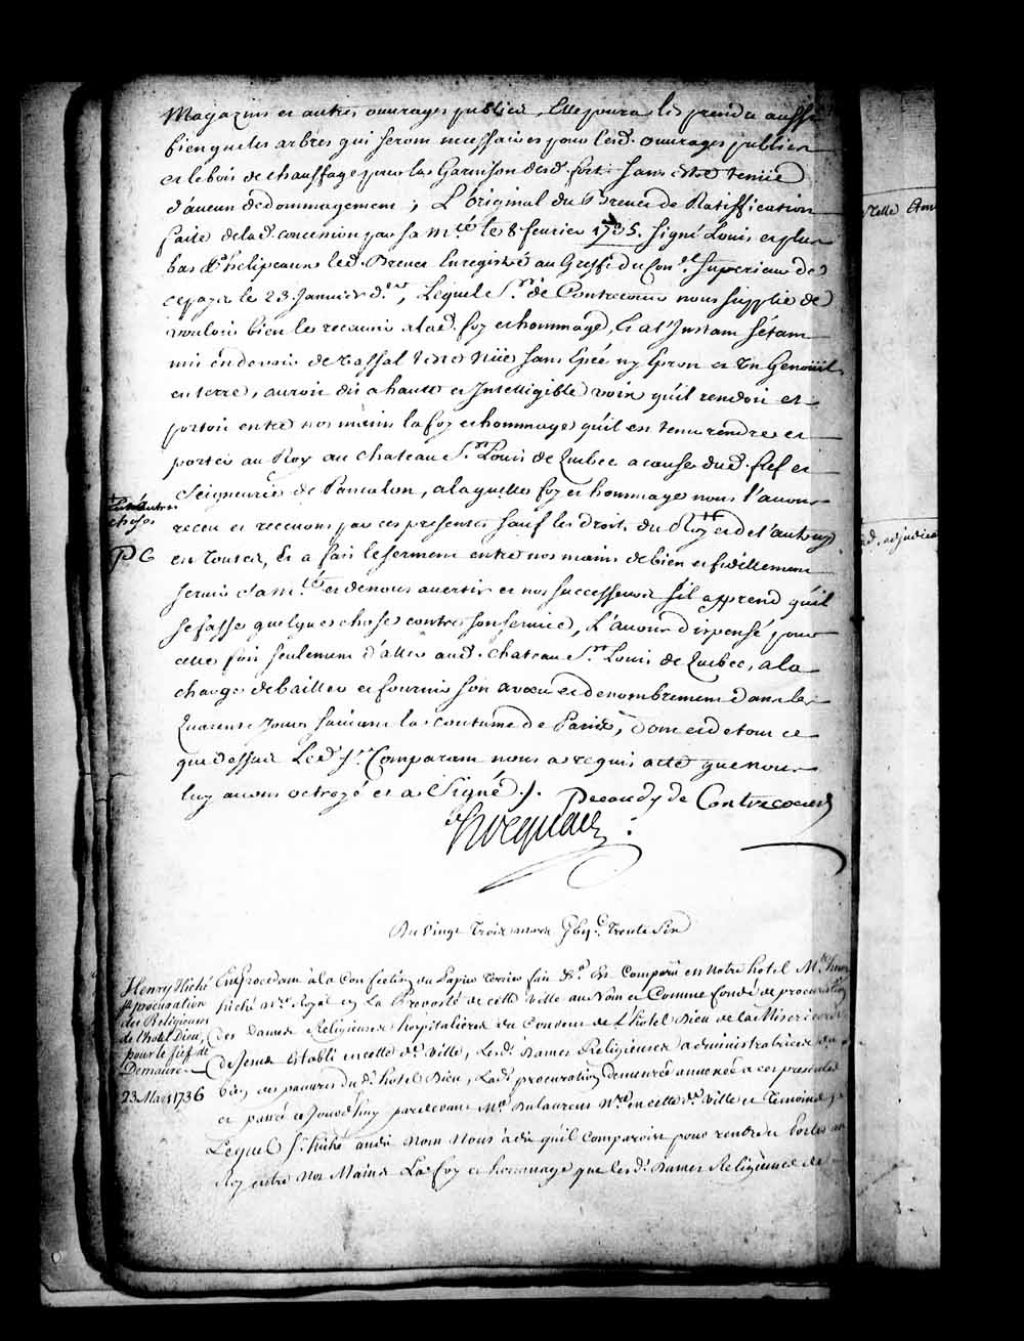 Magazins et autres ouvrages publics, Elle poura les prendre aussy
bien que les arbres qui seront necessaires pour lesd. ouvrages publics
et le bois de chauffage pour la Garnison desd. forts sans estre tenüe
d'aucun dedommagement ; L'original du Brevet de Ratiffication
faite de lad. concession par sa M.té le 8 fevrier 1735. signé Louis et plus
bas Phelipeaux led. Brevet Enregistré au Greffe du Con.el Superieur de
ce païs le 23 Janvier d.er, Lequel S.r de Contrecoeur nous supplie de
vouloir bien le recevoir a lad. foy et hommage, Et a l'Instant s'étant
mis en devoir de vassal teste nüe sans Epée ny Eperon et un Genoüil
en terre, auroit dit a haute et Intelligible voix qu'il rendoit et
portoit entre nos mains la foy et hommage qu'il est tenu rendre et
porter au Roy au chateau S.t Louis de Quebec a cause dud. fief et
Seigneurie de , a laquelle foy et hommage nous l'avons
receu et recevons par ces presentes sauf les droits du Roy et de l'autruy
en toutes, Et a fait le serment entre nos mains de bien et fidellement
servir sa M.té et de nous avertir et nos successeurs s'il apprend qu'il
se fasse quelque chose contre son service, L'avons dispensé pour
cette fois seulement d'aller aud. chateau S.t Louis de Quebec, a la
charge de bailler et fournir son aveu et denombrement dans les
Quarente Jours suivant la coutume de Paris, dont et de tout ce
que dessus Led. S.r Comparant nous a requis acte que nous
luy avons octroyé et a Signé ./. Pecaudy de Contrecoeur
Hocquart
choses
PC
Du vingt Trois mars 7bij.C Trente Six
Henry Hiché
p.r procuration
des Religieuses
de l'hotel Dieu,
pour le fief de
Demaure
23 Mars 1736
En Procedant à la Confection du Papier terrier fait &.a Est Comparu en Notre hotel M.e henry
hiché N.re Royal en La Prevosté de cette Ville au Nom et Comme fondé de procuration
des Dames Religieuses hospitalieres du Couvent de L'hotel Dieu de la Misericorde
de Jesus Etabli en cette d.e Ville, Lesd. Dames Religieuses administratrices du
bien des pauvres du d. hotel Dieu, Lad. procuration demeurée annexée a ces presentes
et passée ce Jourd'huy pardevant M.e Dulaurent N.re en cette d.e Ville et Temoins
Lequel S.r hiché aud. nom Nous à dit qu'il comparoit pour rendre et porter au
Roy entre Nos Mains La foy et hommage que lesd. Dames Religieuses de